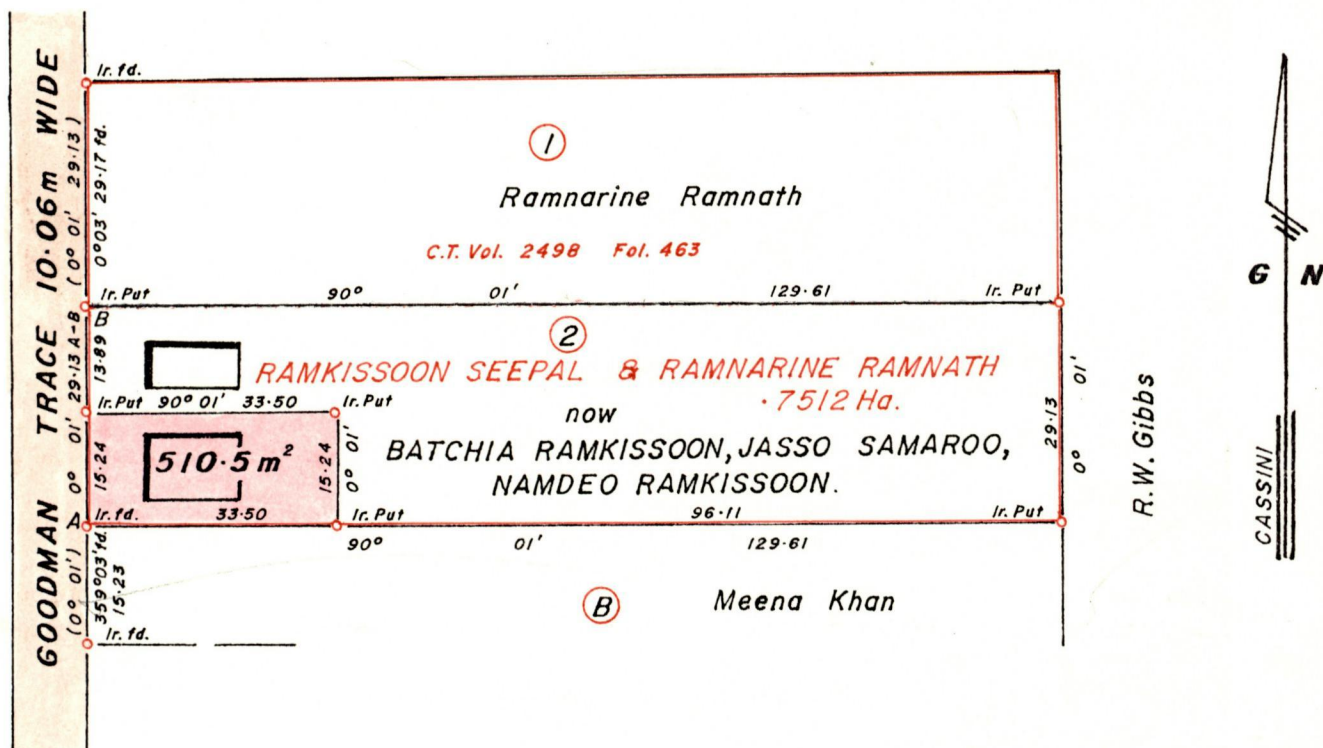 GOODMAN TRACE 10·06m WIDE
Ir. fd.
(0° 01' 29·13)
0°03' 29·17 fd.
1
Ramnarine Ramnath
C.T. Vol. 2498 Fol. 463
Ir. Put 90° 01' 129·61 Ir. Put
B
0° 01' 29·13 A-B
13·89
2
RAMKISSOON SEEPAL & RAMNARINE RAMNATH
·7512 Ha.
Ir. Put 90° 01' 33·50 Ir. Put
now
BATCHIA RAMKISSOON, JASSO SAMAROO,
NAMDEO RAMKISSOON.
510·5 m²
15·24
15·24
0° 01'
29·13
0° 01'
A
Ir. fd. 33·50 Ir. Put 96·11 Ir. Put
90° 01' 129·61
(0° 01')
359°03' fd.
15·23
B
Meena Khan
Ir. fd.
R.W. Gibbs
G N
CASSINI